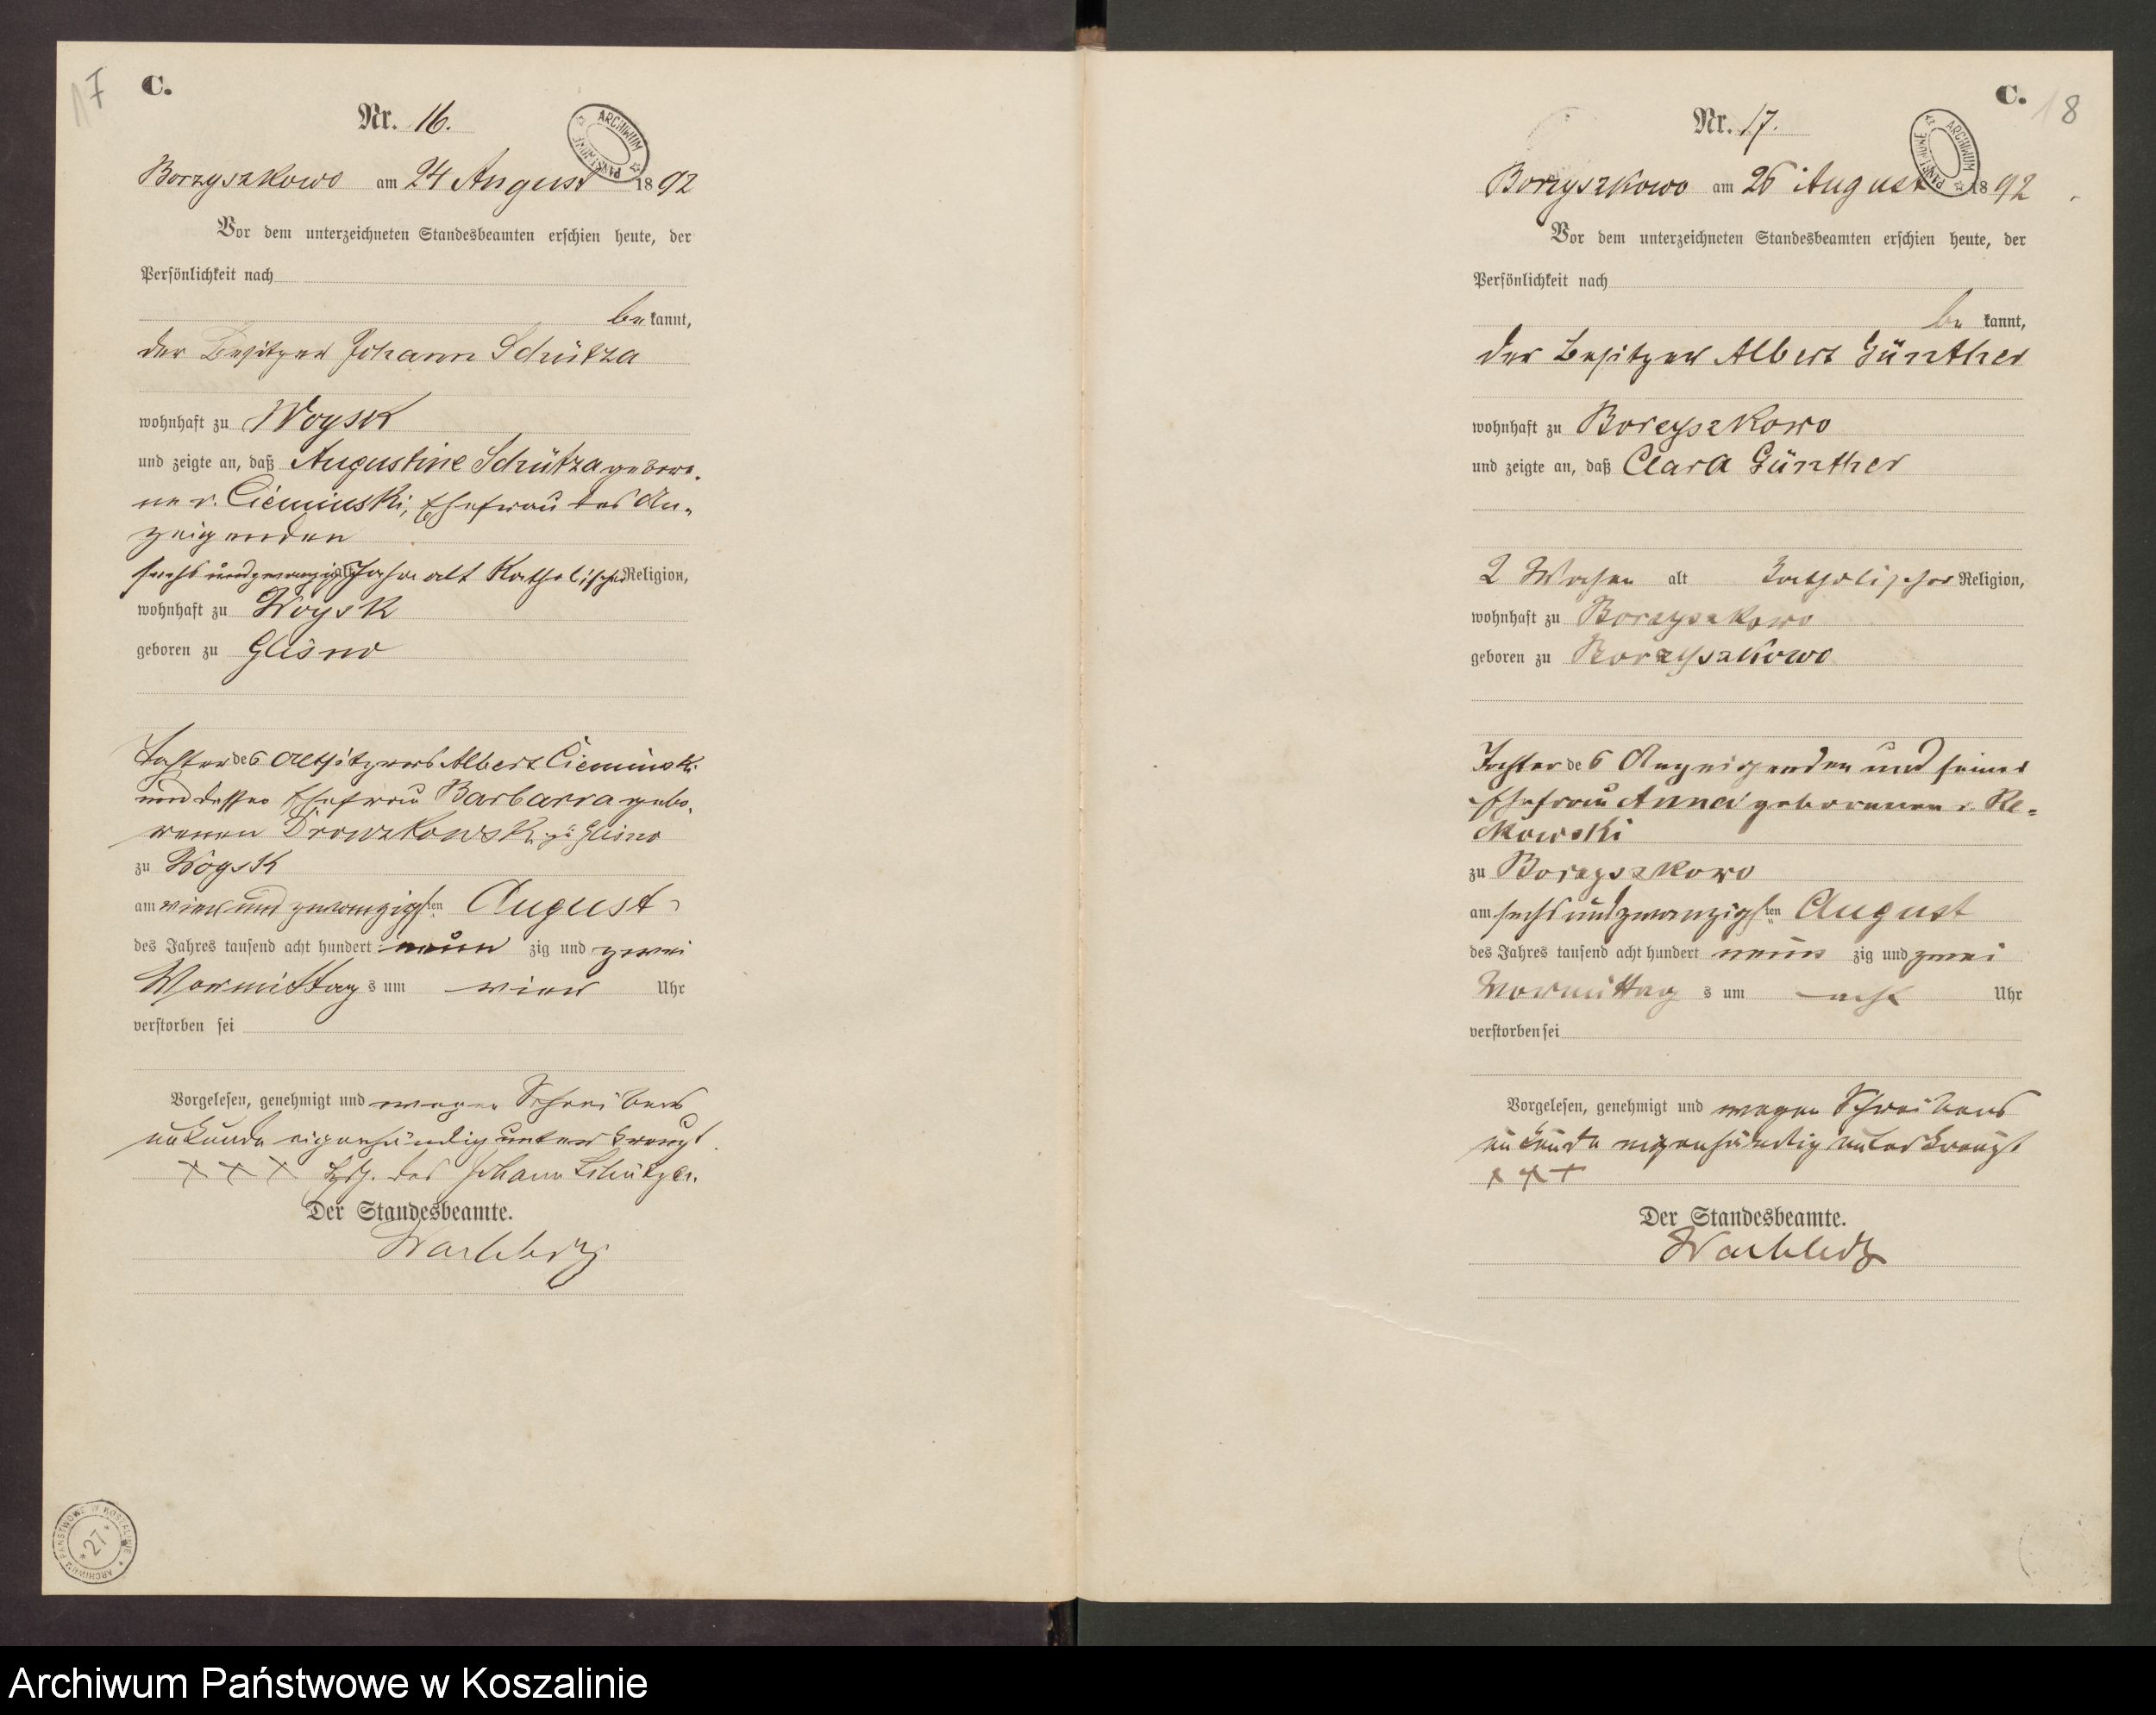 17
C.
Nr. 16.
ARCHIWUM PAŃSTWOWE
Borzyszkowo am 24 August 1892
Vor dem unterzeichneten Standesbeamten erschien heute, der
Persönlichkeit nach
be kannt,
der Besitzer Johann Schütza
wohnhaft zu Woysk
und zeigte an, daß Augustine Schütza gebore-
ne v. Cieminski, Ehefrau des An-
zeigenden
sechs und zwanzig Jahre alt Katholischer Religion,
wohnhaft zu Woysk
geboren zu Glisno
Tochter des Altsitzers Albert Cieminski
und dessen Ehefrau Barbarra gebo-
renen Drowzkowski zu Glisno
zu Woysk
am vier und zwanzigsten August
des Jahres tausend acht hundert neun zig und zwei
Vormittag s um vier Uhr
verstorben sei
Vorgelesen, genehmigt und wegen Schreibens
unkunde eigenhändig unterkreuzt
+ + + Hdz. des Johann Schütza.
Der Standesbeamte.
ARCHIWUM PAŃSTWOWE W KOSZALINIE
* 27 *
C.
18
Nr. 17.
ARCHIWUM PAŃSTWOWE
Borzyszkowo am 26 August 1892
Vor dem unterzeichneten Standesbeamten erschien heute, der
Persönlichkeit nach
be kannt,
der Besitzer Albert Günther
wohnhaft zu Borzyszkowo
und zeigte an, daß Clara Günther
2 Wochen alt katholischer Religion,
wohnhaft zu Borzyszkowo
geboren zu Borzyszkowo
Tochter des Anzeigenden und seiner
Ehefrau Anna geborenen v. Re-
kowski
zu Borzyszkowo
am sechs und zwanzigsten August
des Jahres tausend acht hundert neun zig und zwei
Vormittag s um acht Uhr
verstorben sei
Vorgelesen, genehmigt und wegen Schreibens
unkunde eigenhändig unterkreuzt
+ + +
Der Standesbeamte.
Archiwum Państwowe w Koszalinie